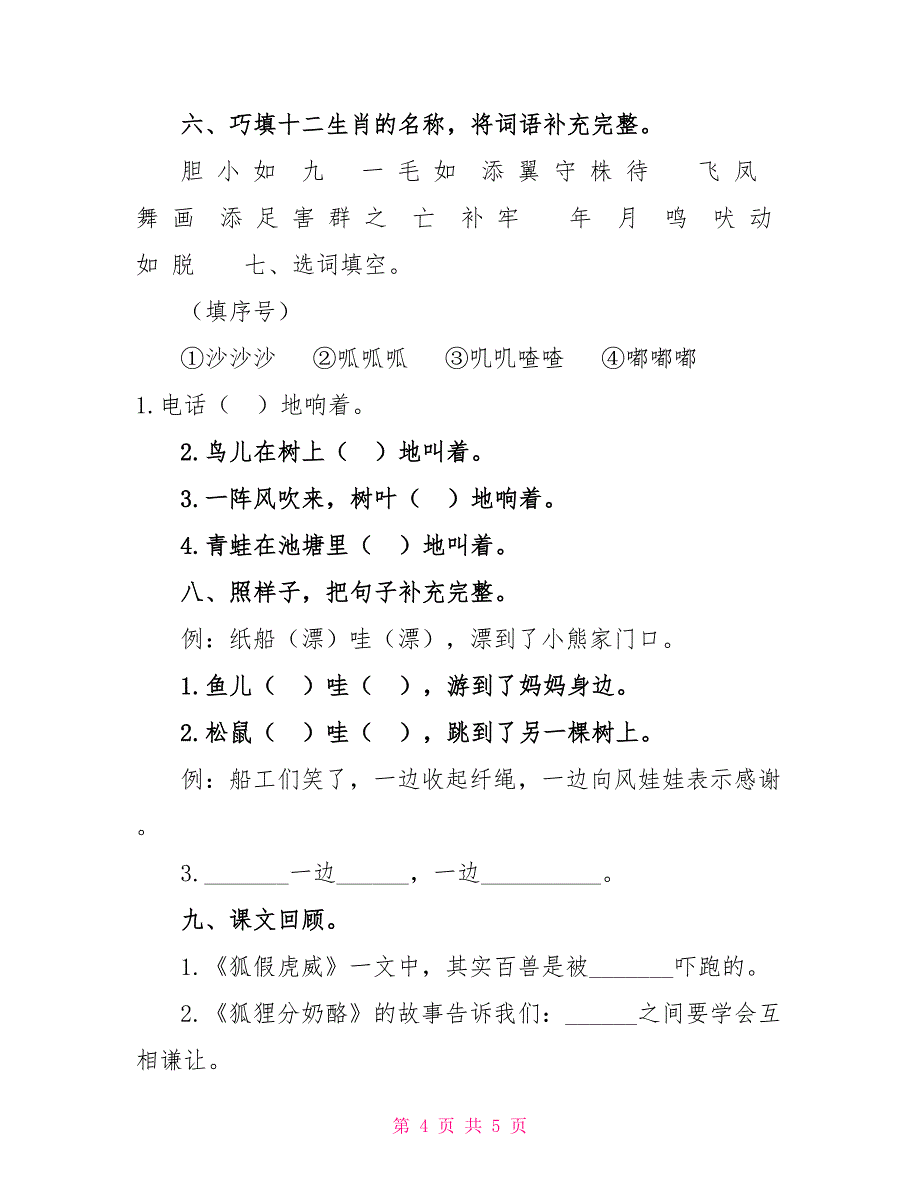 六、巧填十二生肖的名称，将词语补充完整。
胆 小 如 九 一 毛 如 添 翼 守 株 待 飞 凤
舞 画 添 足 害 群 之 亡 补 牢 年 月 鸣 吠 动
如 脱 七、选词填空。
（填序号）
①沙沙沙 ②呱呱呱 ③叽叽喳喳 ④嘟嘟嘟
1.电话（ ）地响着。
2.鸟儿在树上（ ）地叫着。
3.一阵风吹来，树叶（ ）地响着。
4.青蛙在池塘里（ ）地叫着。
八、照样子，把句子补充完整。
例：纸船（漂）哇（漂），漂到了小熊家门口。
1.鱼儿（ ）哇（ ），游到了妈妈身边。
2.松鼠（ ）哇（ ），跳到了另一棵树上。
例：船工们笑了，一边收起纤绳，一边向风娃娃表示感谢
。
3._______一边______，一边__________。
九、课文回顾。
1.《狐假虎威》一文中，其实百兽是被_______吓跑的。
2.《狐狸分奶酪》的故事告诉我们：______之间要学会互
相谦让。
第 4 页 共 5 页